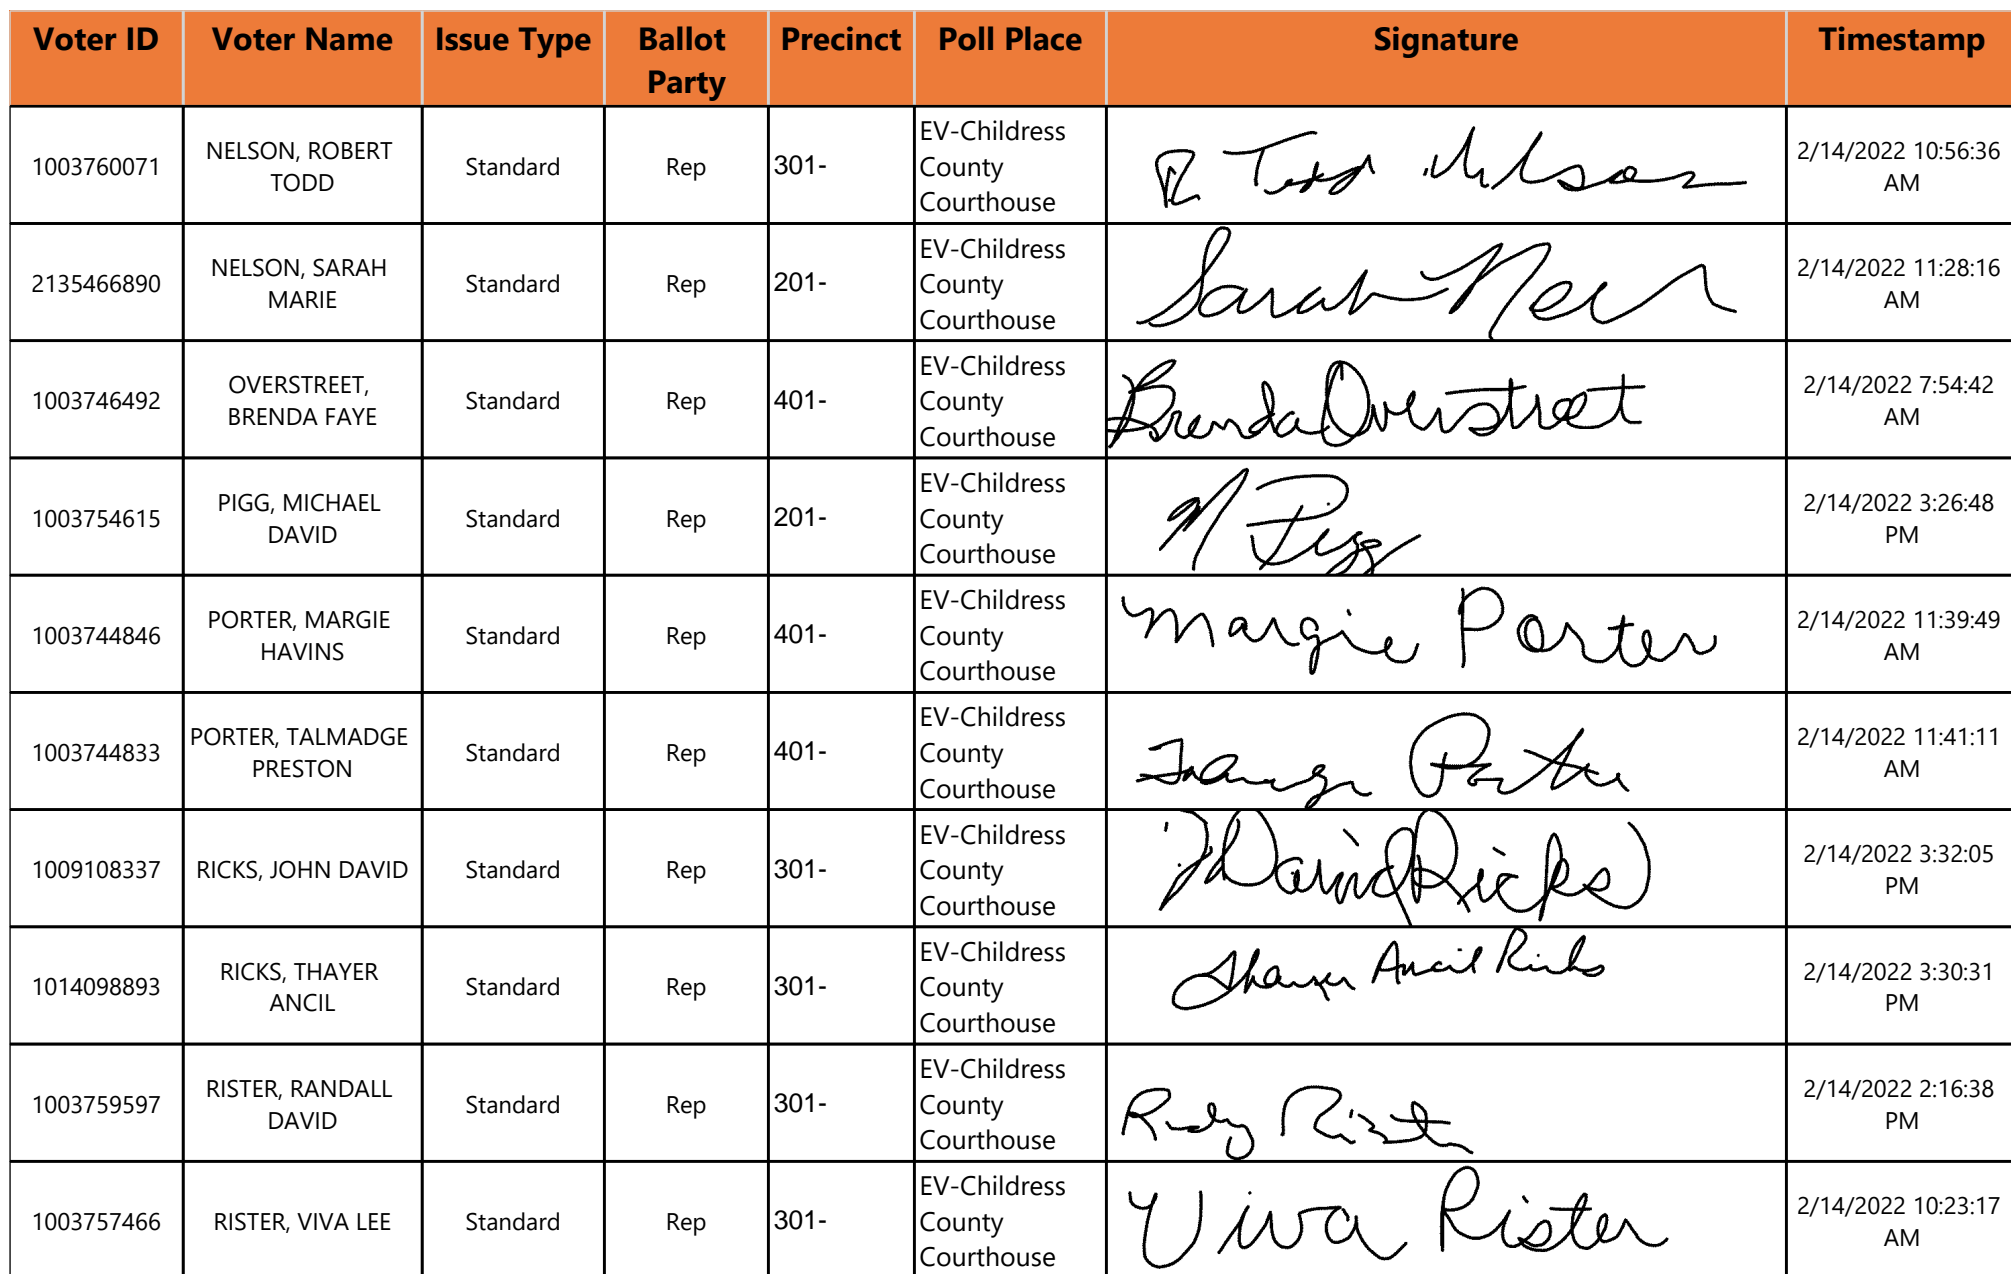 Voter ID Voter Name Issue Type Ballot Party Precinct Poll Place Signature Timestamp
1003760071 NELSON, ROBERT TODD Standard Rep 301- EV-Childress County Courthouse R Todd Nelson 2/14/2022 10:56:36 AM
2135466890 NELSON, SARAH MARIE Standard Rep 201- EV-Childress County Courthouse Sarah Nel 2/14/2022 11:28:16 AM
1003746492 OVERSTREET, BRENDA FAYE Standard Rep 401- EV-Childress County Courthouse Brenda Overstreet 2/14/2022 7:54:42 AM
1003754615 PIGG, MICHAEL DAVID Standard Rep 201- EV-Childress County Courthouse M Pigg 2/14/2022 3:26:48 PM
1003744846 PORTER, MARGIE HAVINS Standard Rep 401- EV-Childress County Courthouse Margie Porter 2/14/2022 11:39:49 AM
1003744833 PORTER, TALMADGE PRESTON Standard Rep 401- EV-Childress County Courthouse Porter 2/14/2022 11:41:11 AM
1009108337 RICKS, JOHN DAVID Standard Rep 301- EV-Childress County Courthouse J David Ricks 2/14/2022 3:32:05 PM
1014098893 RICKS, THAYER ANCIL Standard Rep 301- EV-Childress County Courthouse Thayer Ancil Ricks 2/14/2022 3:30:31 PM
1003759597 RISTER, RANDALL DAVID Standard Rep 301- EV-Childress County Courthouse Rister 2/14/2022 2:16:38 PM
1003757466 RISTER, VIVA LEE Standard Rep 301- EV-Childress County Courthouse Viva Rister 2/14/2022 10:23:17 AM